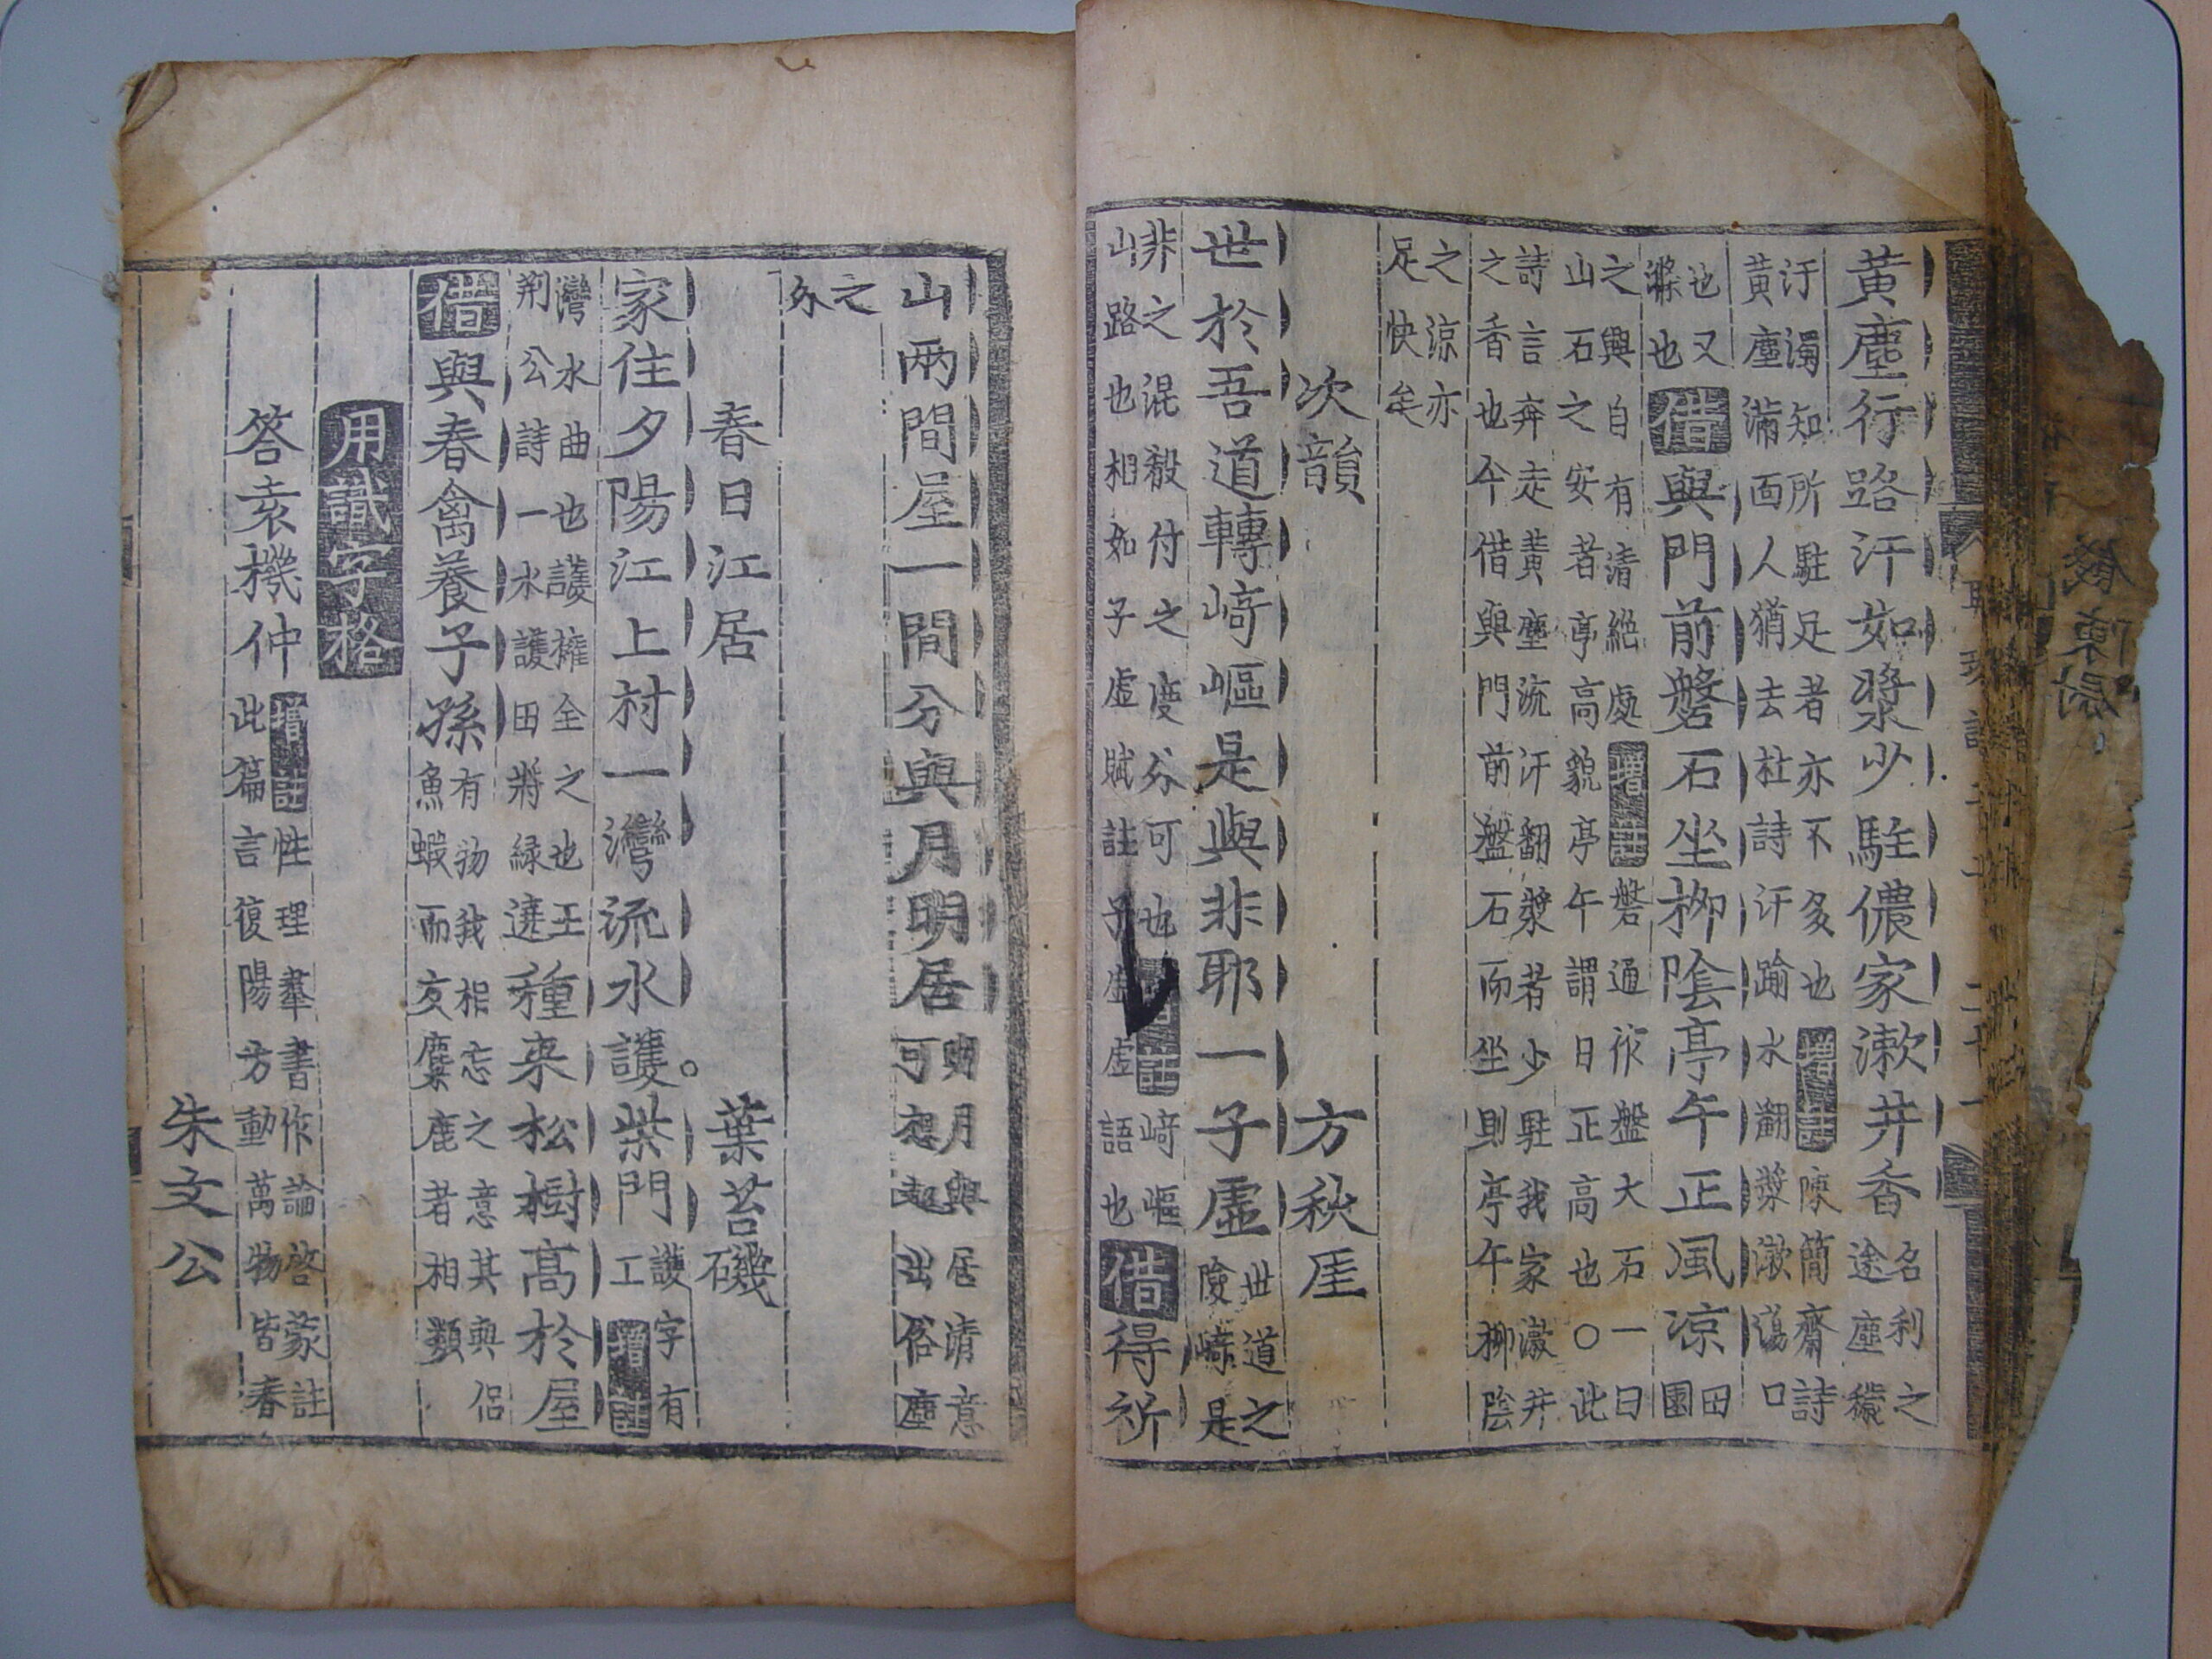 黃塵行路汗如漿少駐儂家漱井香
名利之
途塵穢
汙濁知所駐足者亦不多也增註陳簡齋詩
黃塵滿面人猶去杜詩汗踰水翻漿漱蕩口
也又
滌也
借與門前磐石坐柳陰亭午正風涼
田
園
之興自有清絕處增註磐通作盤大石一曰
山石之安者亭高貌亭午謂日正高也○此
詩言奔走黃塵流汗翻漿者少駐我家漱井
之香也今借與門前盤石而坐則亭午柳陰
之涼亦
足快矣
次韻 方秋厓
世於吾道轉崎嶇是與非耶一子虛
世道之
險崎是
非之混殽付之度外可也增註崎嶇
山路也相如子虛賦註子虛虛語也
借得祈
山兩間屋一間分與月明居
月與居清意
可想起出俗塵
之
外
春日江居 葉苔磯
家住夕陽江上村一灣流水護柴門
護字有
工增註
灣水曲也護擁全之也王
荆公詩一水護田將綠遶
種来松樹高於屋
借與春禽養子孫
有物我相忘之意其與侶
魚蝦而友麋鹿者相類
用識字格
答袁機仲
增註性理羣書作論啓蒙註
此篇言復陽方動萬物皆春
朱文公